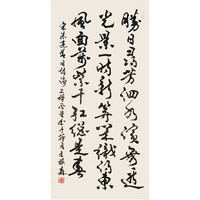 勝日尋芳泗水濱無邊
光景一時新等閒識得東
風面萬紫千紅總是春
宋朱熹春日詩